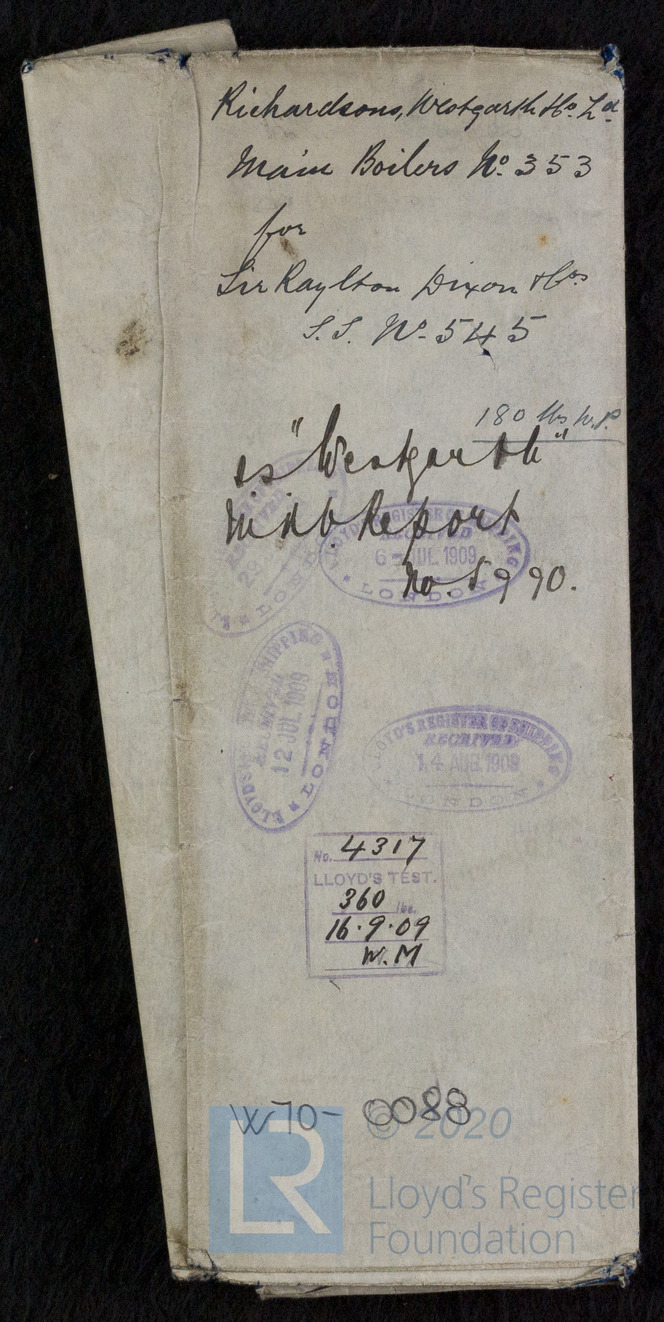 Richardsons, Westgarth & Co. Ld.
Main Boilers No. 353
for
Sir Raylton Dixon & Co.
S.S. No. 545
180 lbs W.P.
ss "Westgarth"
Midb. Report
No. 5990.
LLOYD'S REGISTER OF SHIPPING
RECEIVED
6 - JUL 1909
LONDON
RECEIVED
LONDON
LLOYD'S SHIPPING
RECEIVED
12 JUL 1909
LONDON
LLOYD'S REGISTER OF SHIPPING
RECEIVED
14 AUG. 1909
LONDON
No. 4317
LLOYD'S TEST.
360 lbs.
16.9.09
W.M
W70-0088
© 2020
LR
Lloyd's Register
Foundation